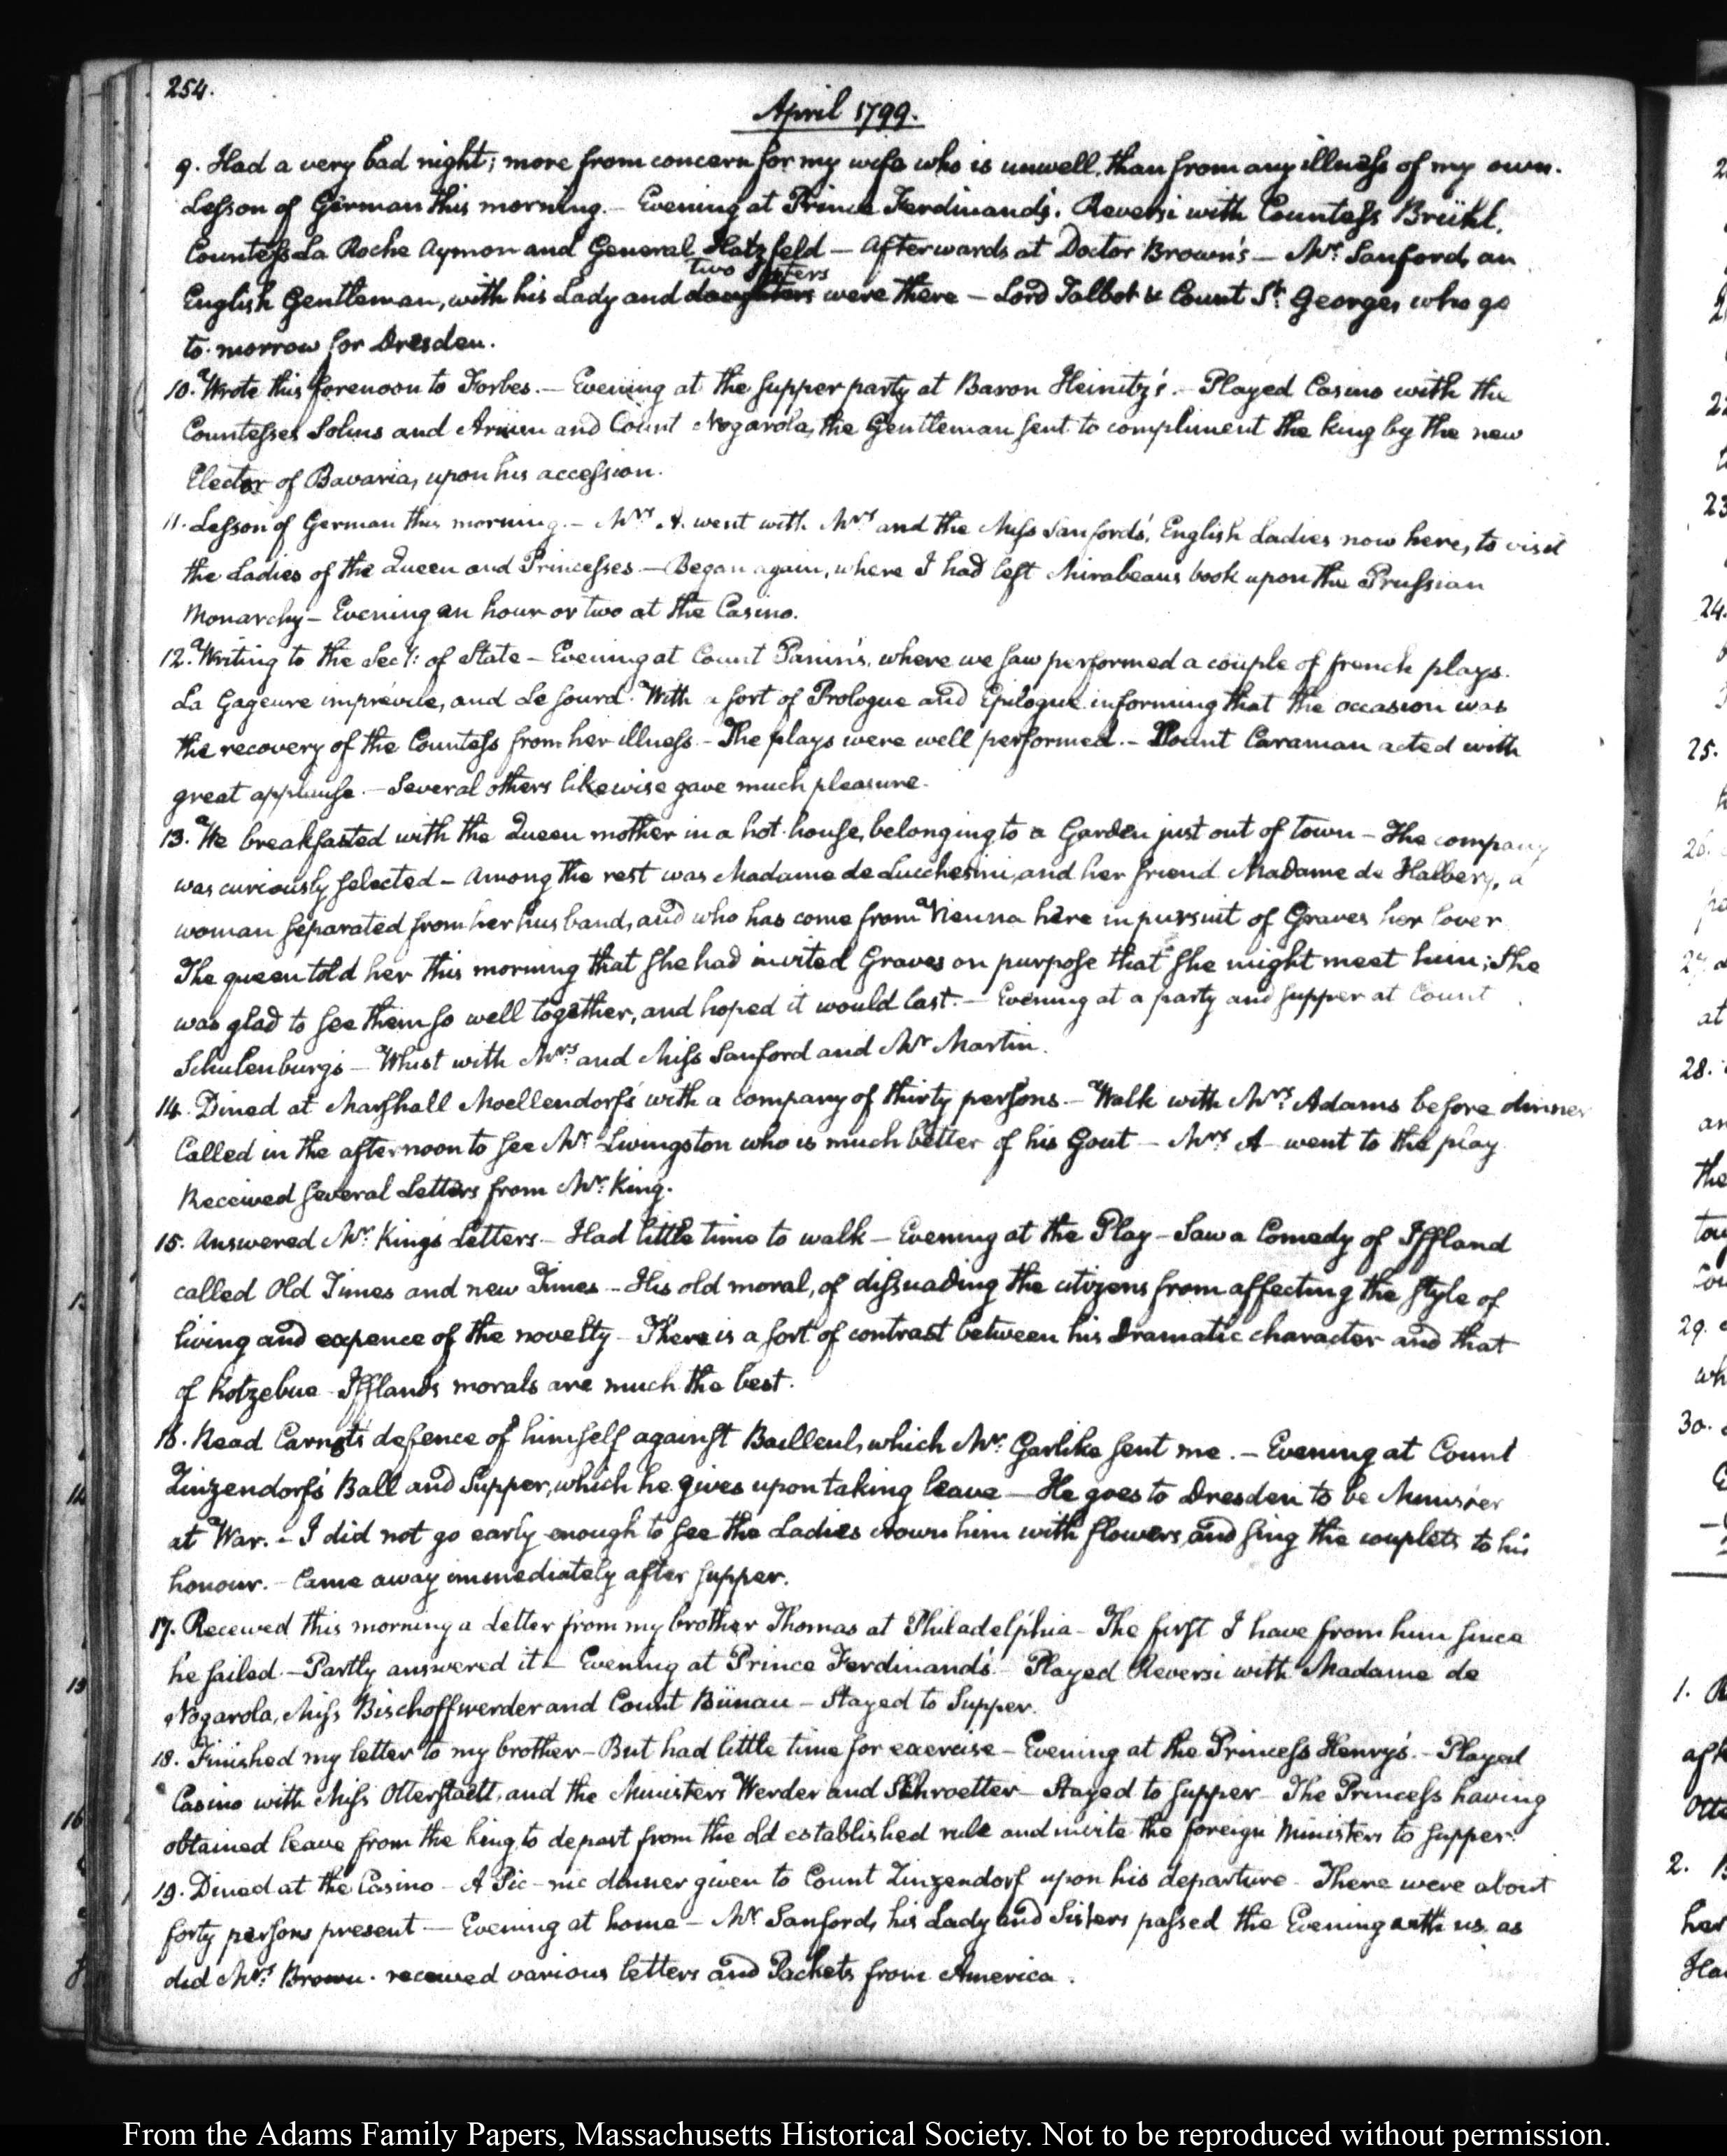 254.
April 1799.
9. Had a very bad night; more from concern for my wife who is unwell, than from any illness of my own.
Lesson of German this morning. – Evening at Prince Ferdinand's. Reversi with Countess Brühl,
Countess La Roche Aymon and General Hatzfeld – Afterwards at Doctor Brown's – Mr. Sanford, an
two sisters
English Gentleman, with his Lady and daughters were there – Lord Talbot & Count St. Georges, who go
to-morrow for Dresden.
10. Wrote this forenoon to Forbes. – Evening at the supper party at Baron Heinitz's. – Played Casino with the
Countesses Solms and Arnim and Count Nogarola, the Gentleman sent to compliment the King by the new
Elector of Bavaria, upon his accession.
11. Lesson of German this morning. – Mrs. A. went with Mrs. and the Miss Sanfords', English Ladies now here, to visit
the Ladies of the Queen and Princesses – Began again, where I had left Mirabeaus book upon the Prussian
Monarchy – Evening an hour or two at the Casino.
12. Writing to the Secy: of State – Evening at Count Panin's, where we saw performed a couple of french plays.
La Gageure imprévue, and Le Sourd. With a sort of Prologue and Epilogue informing that the occasion was
the recovery of the Countess from her illness – The plays were well performed. – Count Caraman acted with
great applause. – Several others likewise gave much pleasure.
13. We breakfasted with the Queen mother in a hot-house, belonging to a Garden just out of town – The company
was curiously selected – Among the rest was Madame de Lucchesini, and her friend Madame de Halberg, a
woman separated from her husband, and who has come from Vienna here in pursuit of Graves her lover
The queen told her this morning that she had invited Graves on purpose that she might meet him; She
was glad to see them so well together, and hoped it would last. – Evening at a party and supper at Count
Schulenburg's – Whist with Mrs. and Miss Sanford and Mr. Martin.
14. Dined at Marshall Moellendorf's with a company of thirty persons. – Walk with Mrs. Adams before dinner
Called in the afternoon to see Mr. Livingston who is much better of his Gout – Mrs. A– went to the play
Received several Letters from Mr. King.
15. Answered Mr. King's Letters – Had little time to walk – Evening at the Play – Saw a Comedy of Iffland
called Old Times and new Times – His old moral, of dissuading the citizens from affecting the style of
living and expence of the novelty – There is a sort of contrast between his Dramatic character and that
of Kotzebue – Iffland's morals are much the best.
16. Read Carnot's defence of himself against Bailleul, which Mr. Garlike sent me. – Evening at Count
Zinzendorf's Ball and Supper, which he gives upon taking leave – He goes to Dresden to be Minister
at War. – I did not go early enough to see the Ladies crown him with flowers, and sing the couplets to his
honour. – Came away immediately after supper.
17. Received this morning a Letter from my brother Thomas at Philadelphia – The first I have from him since
he sailed. – Partly answered it – Evening at Prince Ferdinand's. – Played Reversi with Madame de
Nogarola, Miss Bischoffwerder and Count Bünau – Stayed to Supper.
18. Finished my letter to my brother – But had little time for exercise – Evening at the Princess Henry's. – Played
Casino with Miss Otterstaedt, and the Ministers Werder and Schroetter – Stayed to supper – The Princess having
obtained leave from the king, to depart from the old established rule and invite the foreign Ministers to supper.
19. Dined at the Casino – A Pic-nic dinner given to Count Zinzendorf upon his departure – There were about
forty persons present – Evening at home – Mr. Sanford, his Lady and Sisters passed the Evening with us, as
did Mrs. Brown. received various letters and Packets from America.
From the Adams Family Papers, Massachusetts Historical Society. Not to be reproduced without permission.